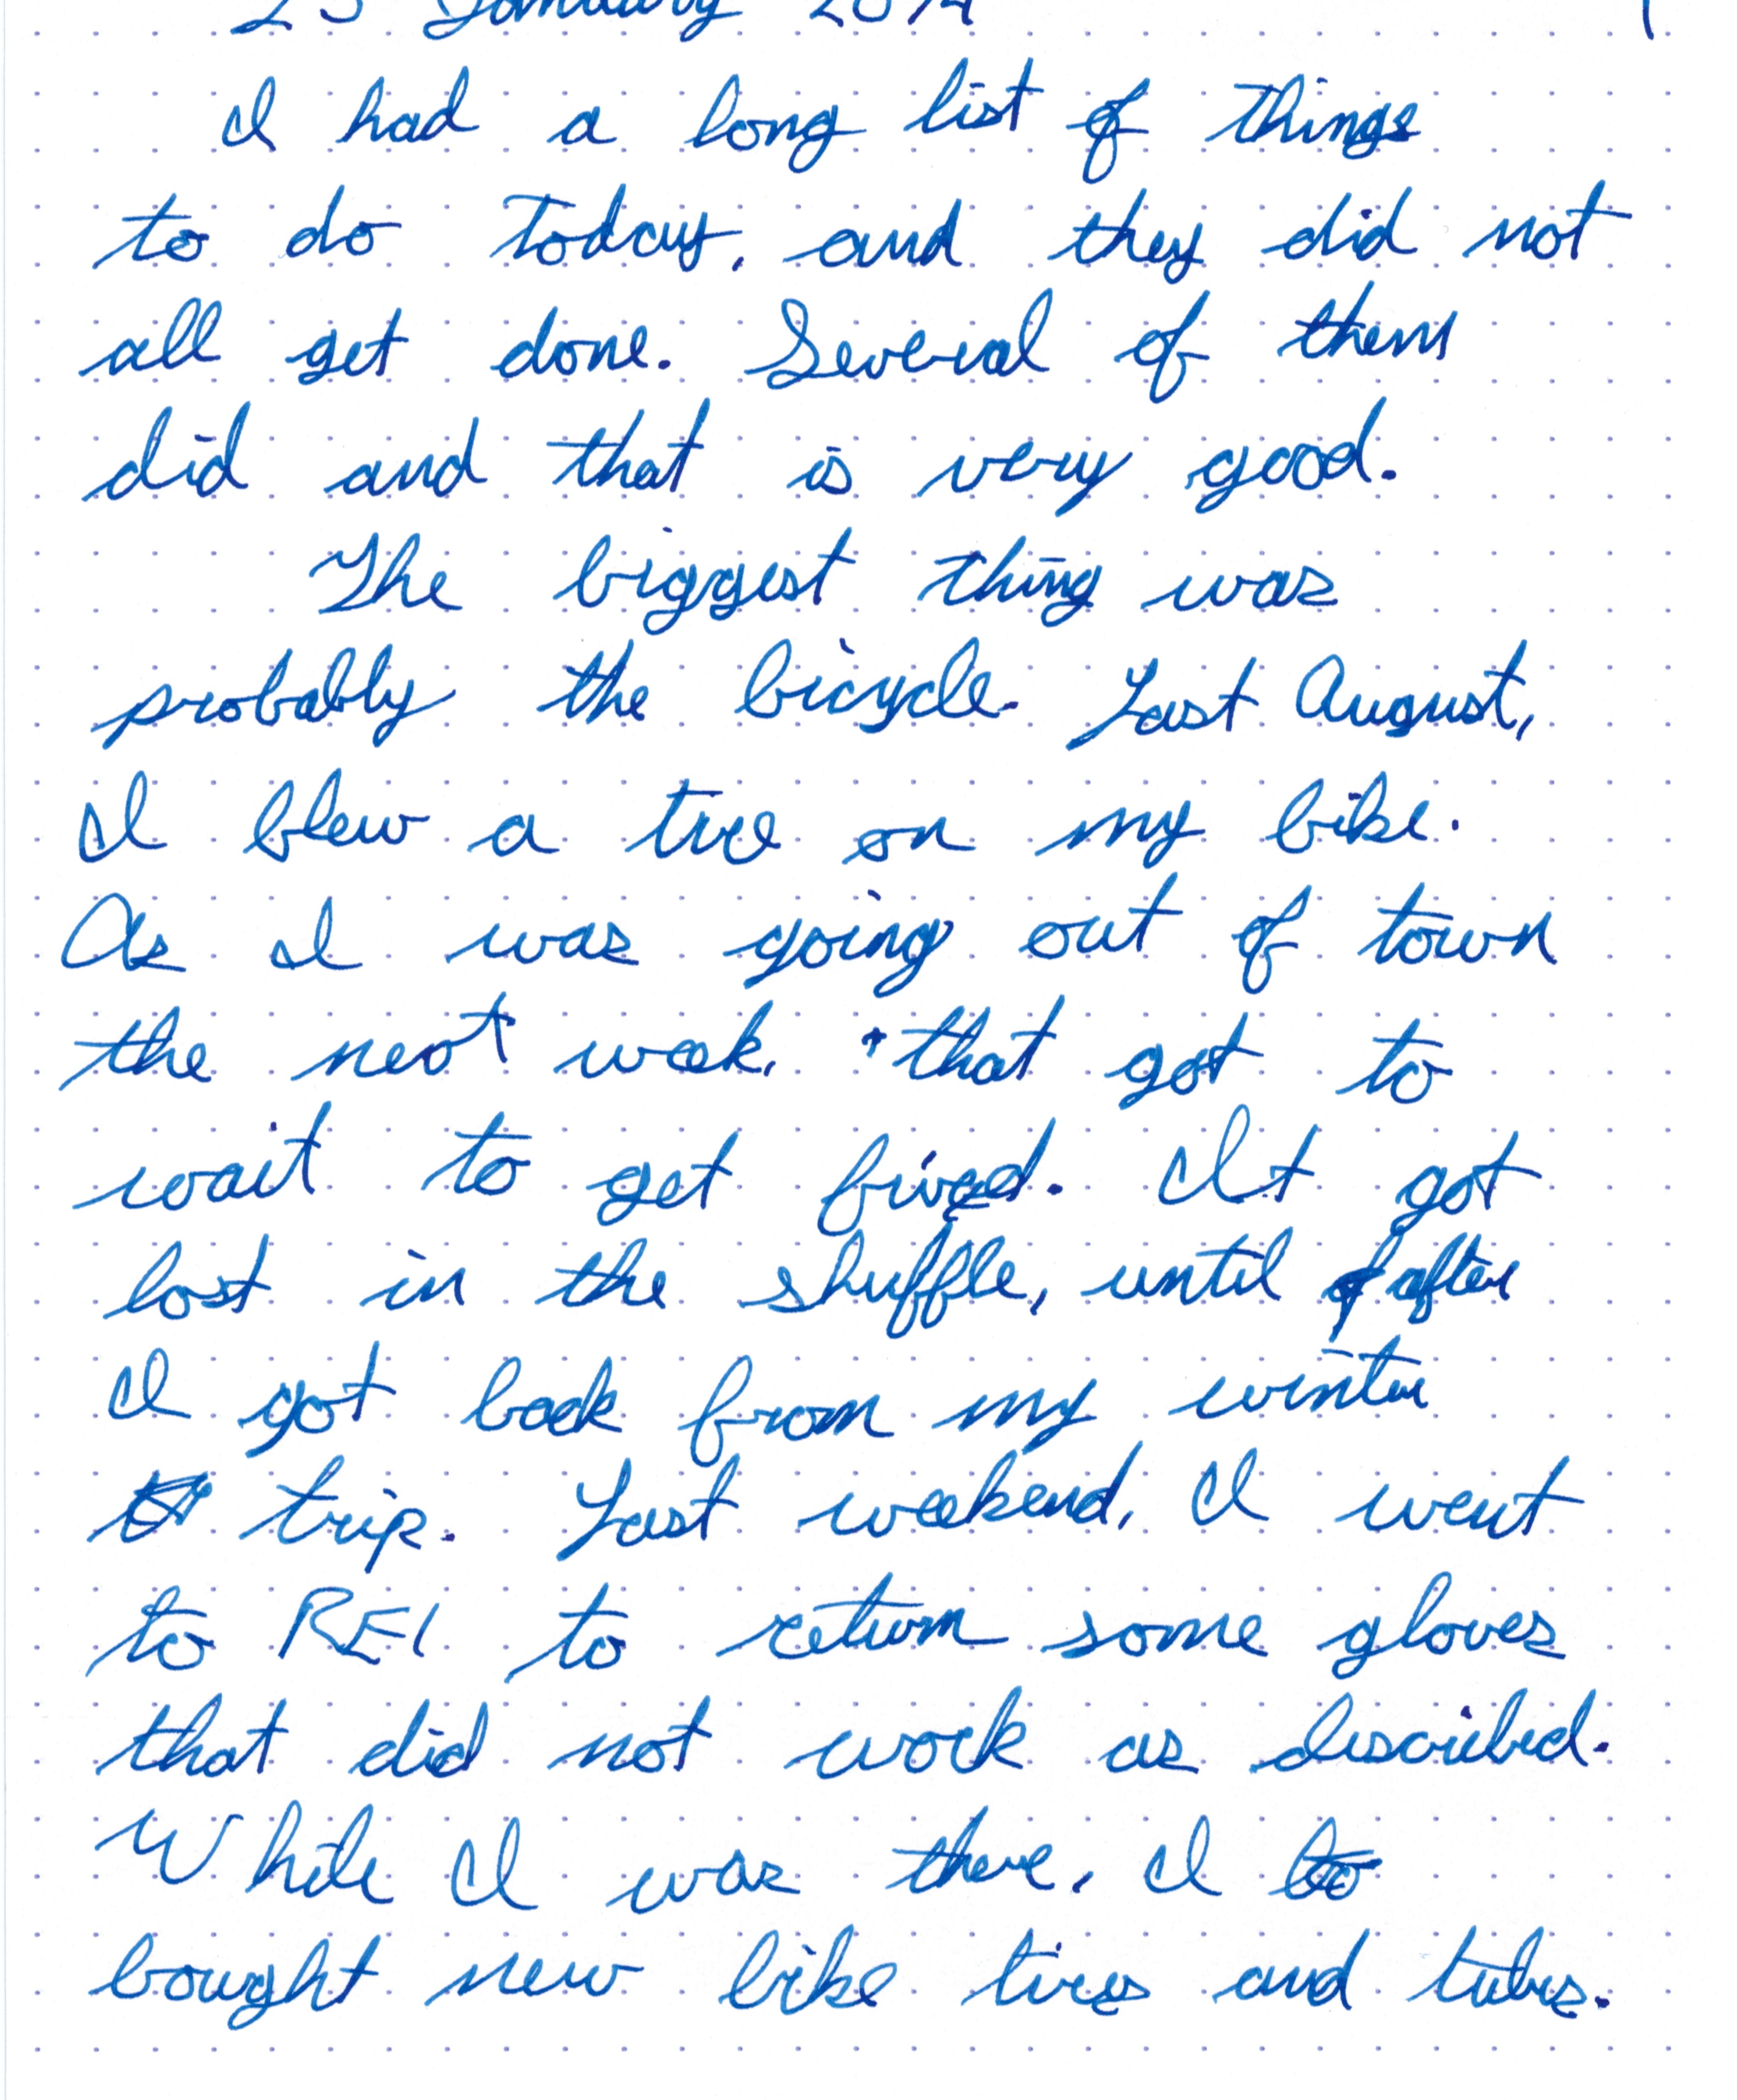 January
I had a long list of things
to do today, and they did not
all get done. Several of them
did and that is very good.
The biggest thing was
probably the bicycle. Last August,
I blew a tire on my bike.
As I was going out of town
the next week, that got to
wait to get fixed. It got
lost in the shuffle, until after
I got back from my winter
trip. Last weekend, I went
to REI to return some gloves
that did not work as described.
While I was there, I
bought new bike tires and tubes.